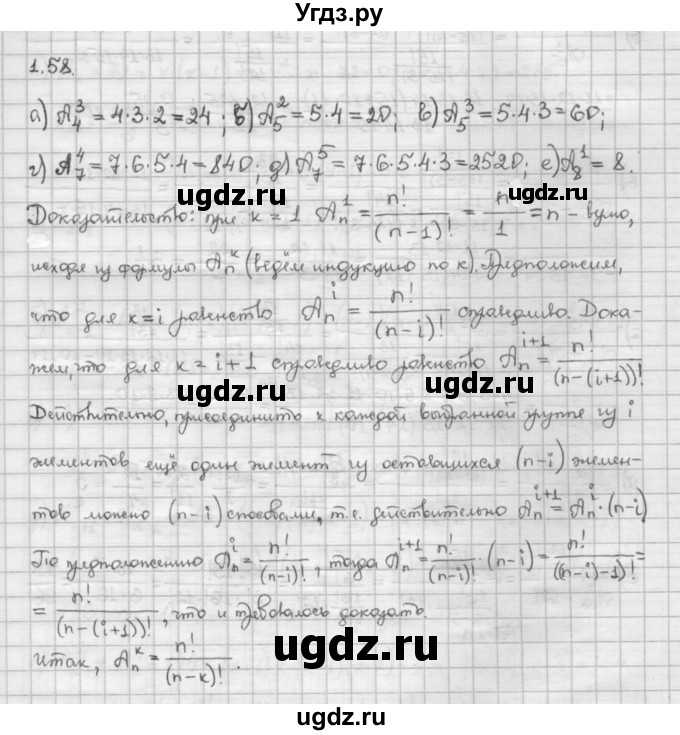 Угдз.ру
1.58.
а) A₄³ = 4·3·2 = 24; б) A₅² = 5·4 = 20; в) A₅³ = 5·4·3 = 60;
г) A₇⁴ = 7·6·5·4 = 840; д) A₇⁵ = 7·6·5·4·3 = 2520; е) A₈¹ = 8.
ugdz.ru ugdz.ru
Доказательство: при k = 1 Aₙ¹ = n!/(n-1)! = n/1 = n - верно,
исходя из формулы Aₙᵏ (ведём индукцию по k). Предположим,
что для k = i равенство Aₙⁱ = n!/(n-i)! справедливо. Дока-
жем, что для k = i+1 справедливо равенство Aₙⁱ⁺¹ = n!/(n-(i+1))!
ugdz.ru ugdz.ru
Действительно, присоединить к каждой выбранной группе из i
элементов ещё один элемент из оставшихся (n-i) элемен-
тов можно (n-i) способами, т.е. действительно Aₙⁱ⁺¹ = Aₙⁱ·(n-i)
ugdz.ru ugdz.ru
По предположению Aₙⁱ = n!/(n-i)!, тогда Aₙⁱ⁺¹ = n!/(n-i)! · (n-i) = n!/((n-i)-1)! =
= n!/(n-(i+1))!, что и требовалось доказать.
Итак, Aₙᵏ = n!/(n-k)!.
ugdz.ru
ugdz.ru